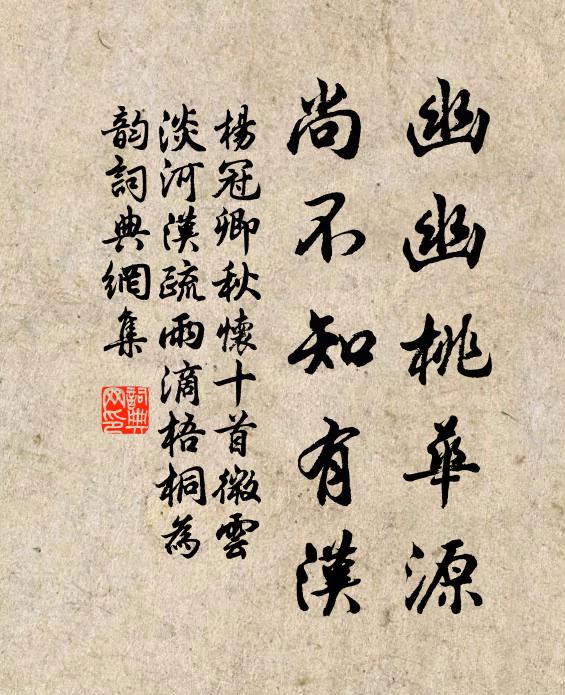 幽幽桃華源
尚不知有漢
楊冠卿秋懷十首微雲
淡河漢疏雨滴梧桐為
韵詞典網集
詞典
网印